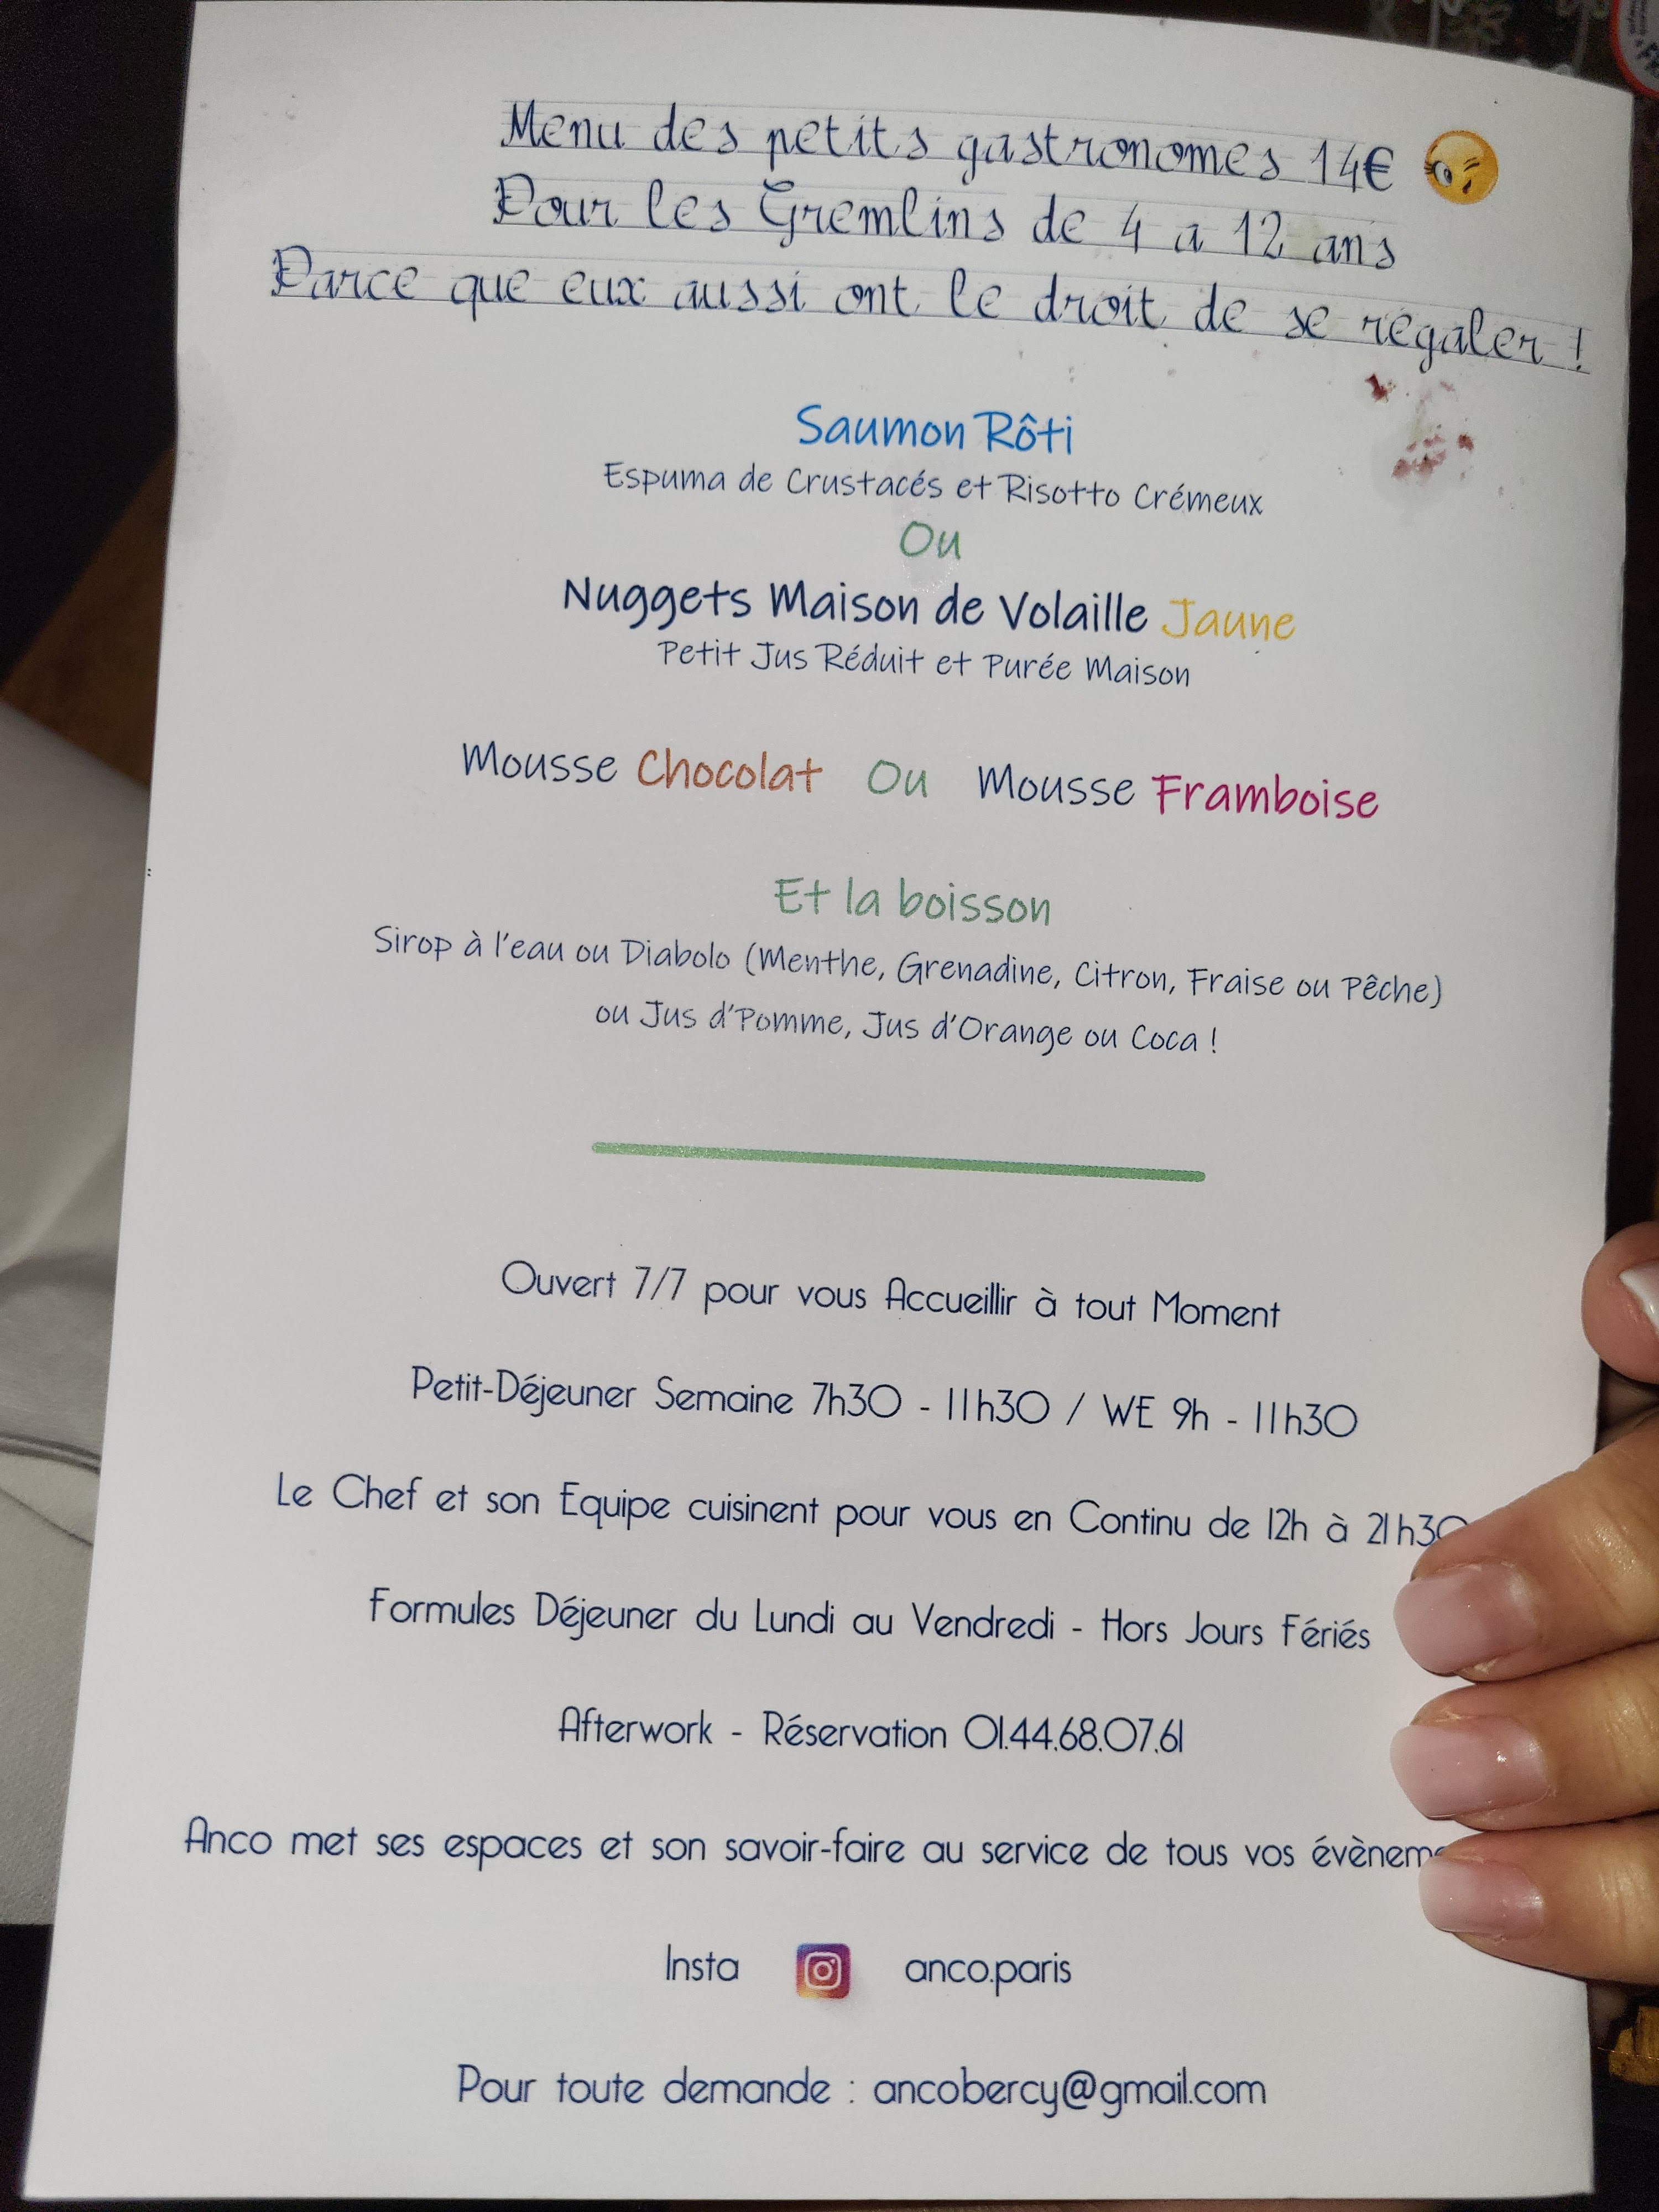 Menu des petits gastronomes 14€
Pour les Gremlins de 4 a 12 ans
Parce que eux aussi ont le droit de se régaler !
Saumon Rôti
Espuma de Crustacés et Risotto Crémeux
Ou
Nuggets Maison de Volaille Jaune
Petit Jus Réduit et Purée Maison
Mousse Chocolat Ou Mousse Framboise
Et la boisson
Sirop à l'eau ou Diabolo (Menthe, Grenadine, Citron, Fraise ou Pêche)
ou Jus d'Pomme, Jus d'Orange ou Coca !
Ouvert 7/7 pour vous Accueillir à tout Moment
Petit-Déjeuner Semaine 7h30 - 11h30 / WE 9h - 11h30
Le Chef et son Equipe cuisinent pour vous en Continu de 12h à 21h30
Formules Déjeuner du Lundi au Vendredi - Hors Jours Fériés
Afterwork - Réservation 01.44.68.07.61
Anco met ses espaces et son savoir-faire au service de tous vos évènem
Insta anco.paris
Pour toute demande : ancobercy@gmail.com